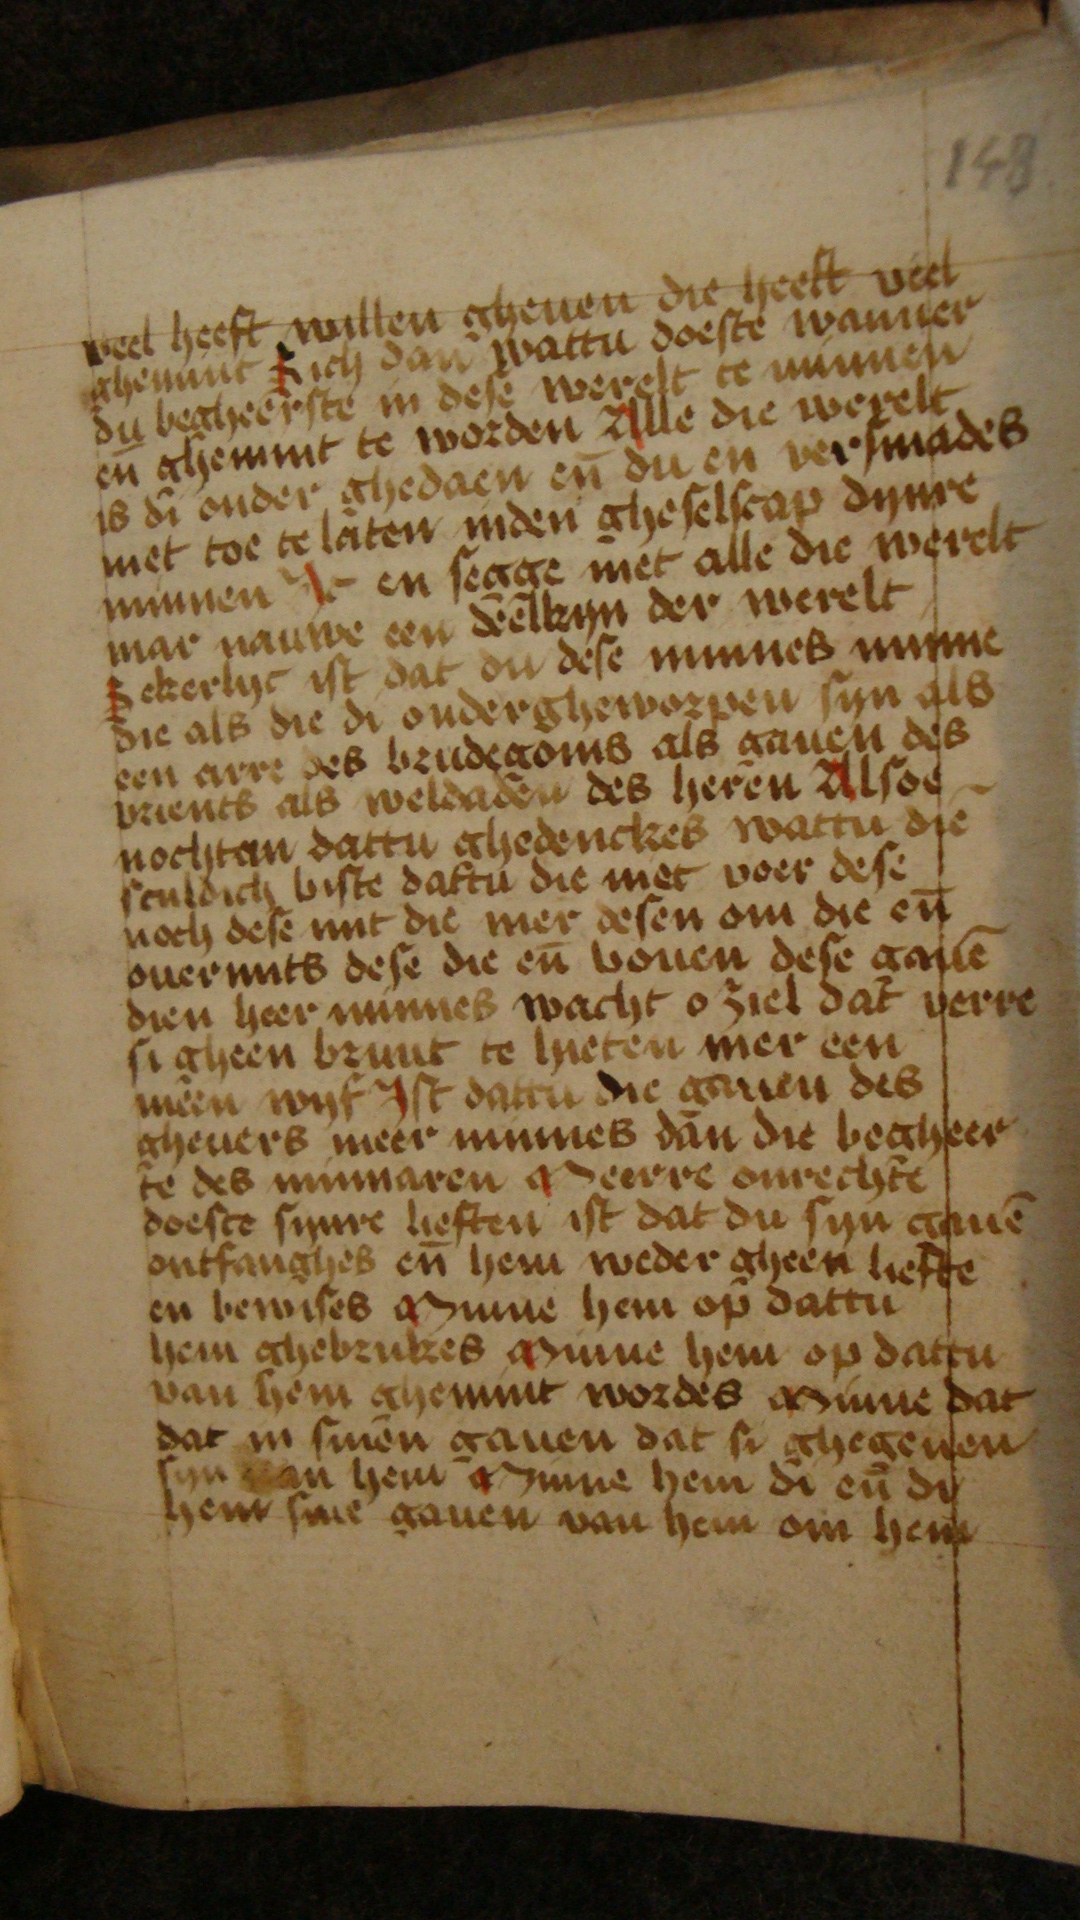 148.
veel heeft willen gheuen die heeft veel
ghemint Sich dan wattu doeste wanner
du begheerste in dese werelt te minnen
en̄ ghemint te worden Alle die werelt
is di onder ghedaen en̄ du en versmades
niet toe te laten inden gheselscap dynre
minnen Ic en segge niet alle die werelt
mar nauwe een deelkyn der werelt
Sekerlyc ist dat du dese minnes minne
die als die di ondergheworpen syn als
een arre des brudegoms als gauen des
vrients als weldaden des heren Alsoe
nochtan dattu ghedenckes wattu die
sculdich biste dattu die niet voer dese
noch dese mit die mer desen om die en̄
ouermits dese die en̄ bouen dese gauē
dien heer minnes wacht o ziel dat verre
si gheen bruut te hieten mer een
meen wyf Ist dattu die gauen des
gheuers meer minnes dan die begheer
te des minnaren Meerre onrechte
doeste synre lieften ist dat du syn gauē
ontfanghes en̄ hem weder gheen liefte
en bewises Minne hem op dattu
hem ghebrukes Minne hem op dattu
van hem ghemint wordes Minne dat
dat in sinen gauen dat si ghegeuen
syn van hem Minne hem di en̄ di
hem sine gauen van hem om hem